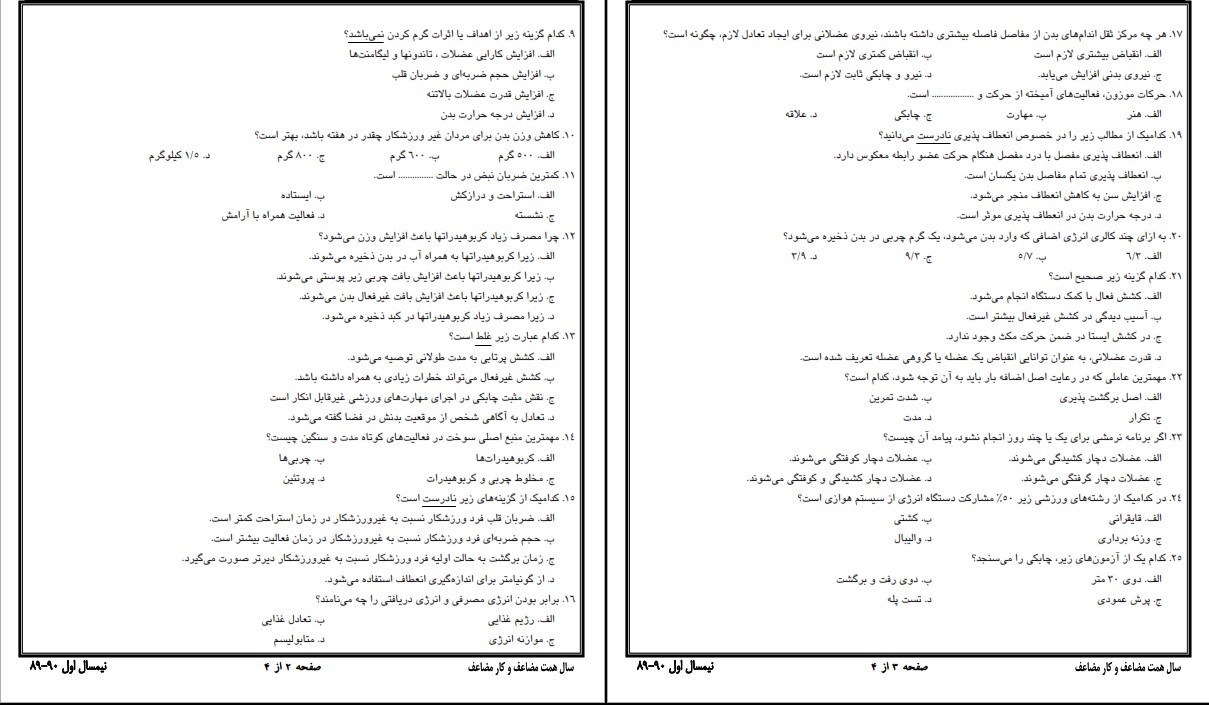 ۹. کدام گزینه زیر از اهداف یا اثرات گرم کردن نمی‌باشد؟
الف. افزایش کارایی عضلات ، تاندونها و لیگامنت‌ها
ب. افزایش حجم ضربه‌ای و ضربان قلب
ج. افزایش قدرت عضلات بالاتنه
د. افزایش درجه حرارت بدن
۱۰. کاهش وزن بدن برای مردان غیر ورزشکار چقدر در هفته باشد، بهتر است؟
الف. ۵۰۰ گرم ب. ۶۰۰ گرم ج. ۸۰۰ گرم د. ۱/۵ کیلوگرم
۱۱. کمترین ضربان نبض در حالت ............... است.
الف. استراحت و درازکش ب. ایستاده
ج. نشسته د. فعالیت همراه با آرامش
۱۲. چرا مصرف زیاد کربوهیدراتها باعث افزایش وزن می‌شود؟
الف. زیرا کربوهیدراتها به همراه آب در بدن ذخیره می‌شوند.
ب. زیرا کربوهیدراتها باعث افزایش بافت چربی زیر پوستی می‌شوند.
ج. زیرا کربوهیدراتها باعث افزایش بافت غیرفعال بدن می‌شوند.
د. زیرا مصرف زیاد کربوهیدراتها در کبد ذخیره می‌شود.
۱۳. کدام عبارت زیر غلط است؟
الف. کشش پرتابی به مدت طولانی توصیه می‌شود.
ب. کشش غیرفعال می‌تواند خطرات زیادی به همراه داشته باشد.
ج. نقش مثبت چابکی در اجرای مهارت‌های ورزشی غیرقابل انکار است
د. تعادل به آگاهی شخص از موقعیت بدنش در فضا گفته می‌شود.
۱۴. مهمترین منبع اصلی سوخت در فعالیت‌های کوتاه مدت و سنگین چیست؟
الف. کربوهیدرات‌ها ب. چربی‌ها
ج. مخلوط چربی و کربوهیدرات د. پروتئین
۱۵. کدامیک از گزینه‌های زیر نادرست است؟
الف. ضربان قلب فرد ورزشکار نسبت به غیرورزشکار در زمان استراحت کمتر است.
ب. حجم ضربه‌ای فرد ورزشکار نسبت به غیرورزشکار در زمان فعالیت بیشتر است.
ج. زمان برگشت به حالت اولیه فرد ورزشکار نسبت به غیرورزشکار دیرتر صورت می‌گیرد.
د. از گونیامتر برای اندازه‌گیری انعطاف استفاده می‌شود.
۱۶. برابر بودن انرژی مصرفی و انرژی دریافتی را چه می‌نامند؟
الف. رژیم غذایی ب. تعادل غذایی
ج. موازنه انرژی د. متابولیسم
سال همت مضاعف و کار مضاعف صفحه ۲ از ۴ نیمسال اول ۹۰-۸۹
۱۷. هر چه مرکز ثقل اندام‌های بدن از مفاصل فاصله بیشتری داشته باشند، نیروی عضلانی برای ایجاد تعادل لازم، چگونه است؟
الف. انقباض بیشتری لازم است ب. انقباض کمتری لازم است
ج. نیروی بدنی افزایش می‌یابد. د. نیرو و چابکی ثابت لازم است.
۱۸. حرکات موزون، فعالیت‌های آمیخته از حرکت و .................. است.
الف. هنر ب. مهارت ج. چابکی د. علاقه
۱۹. کدامیک از مطالب زیر را در خصوص انعطاف پذیری نادرست می‌دانید؟
الف. انعطاف پذیری مفصل با درد مفصل هنگام حرکت عضو رابطه معکوس دارد.
ب. انعطاف پذیری تمام مفاصل بدن یکسان است.
ج. افزایش سن به کاهش انعطاف منجر می‌شود.
د. درجه حرارت بدن در انعطاف پذیری موثر است.
۲۰. به ازای چند کالری انرژی اضافی که وارد بدن می‌شود، یک گرم چربی در بدن ذخیره می‌شود؟
الف. ۶/۳ ب. ۵/۷ ج. ۹/۳ د. ۳/۹
۲۱. کدام گزینه زیر صحیح است؟
الف. کشش فعال با کمک دستگاه انجام می‌شود.
ب. آسیب دیدگی در کشش غیرفعال بیشتر است.
ج. در کشش ایستا در ضمن حرکت مکث وجود ندارد.
د. قدرت عضلانی، به عنوان توانایی انقباض یک عضله یا گروهی عضله تعریف شده است.
۲۲. مهمترین عاملی که در رعایت اصل اضافه بار باید به آن توجه شود، کدام است؟
الف. اصل برگشت پذیری ب. شدت تمرین
ج. تکرار د. مدت
۲۳. اگر برنامه نرمشی برای یک یا چند روز انجام نشود، پیامد آن چیست؟
الف. عضلات دچار کشیدگی می‌شوند. ب. عضلات دچار کوفتگی می‌شوند.
ج. عضلات دچار گرفتگی می‌شوند. د. عضلات دچار کشیدگی و کوفتگی می‌شوند.
۲۴. در کدامیک از رشته‌های ورزشی زیر ۵۰٪ مشارکت دستگاه انرژی از سیستم هوازی است؟
الف. قایقرانی ب. کشتی
ج. وزنه برداری د. والیبال
۲۵. کدام یک از آزمون‌های زیر، چابکی را می‌سنجد؟
الف. دوی ۳۰ متر ب. دوی رفت و برگشت
ج. پرش عمودی د. تست پله
سال همت مضاعف و کار مضاعف صفحه ۳ از ۴ نیمسال اول ۹۰-۸۹